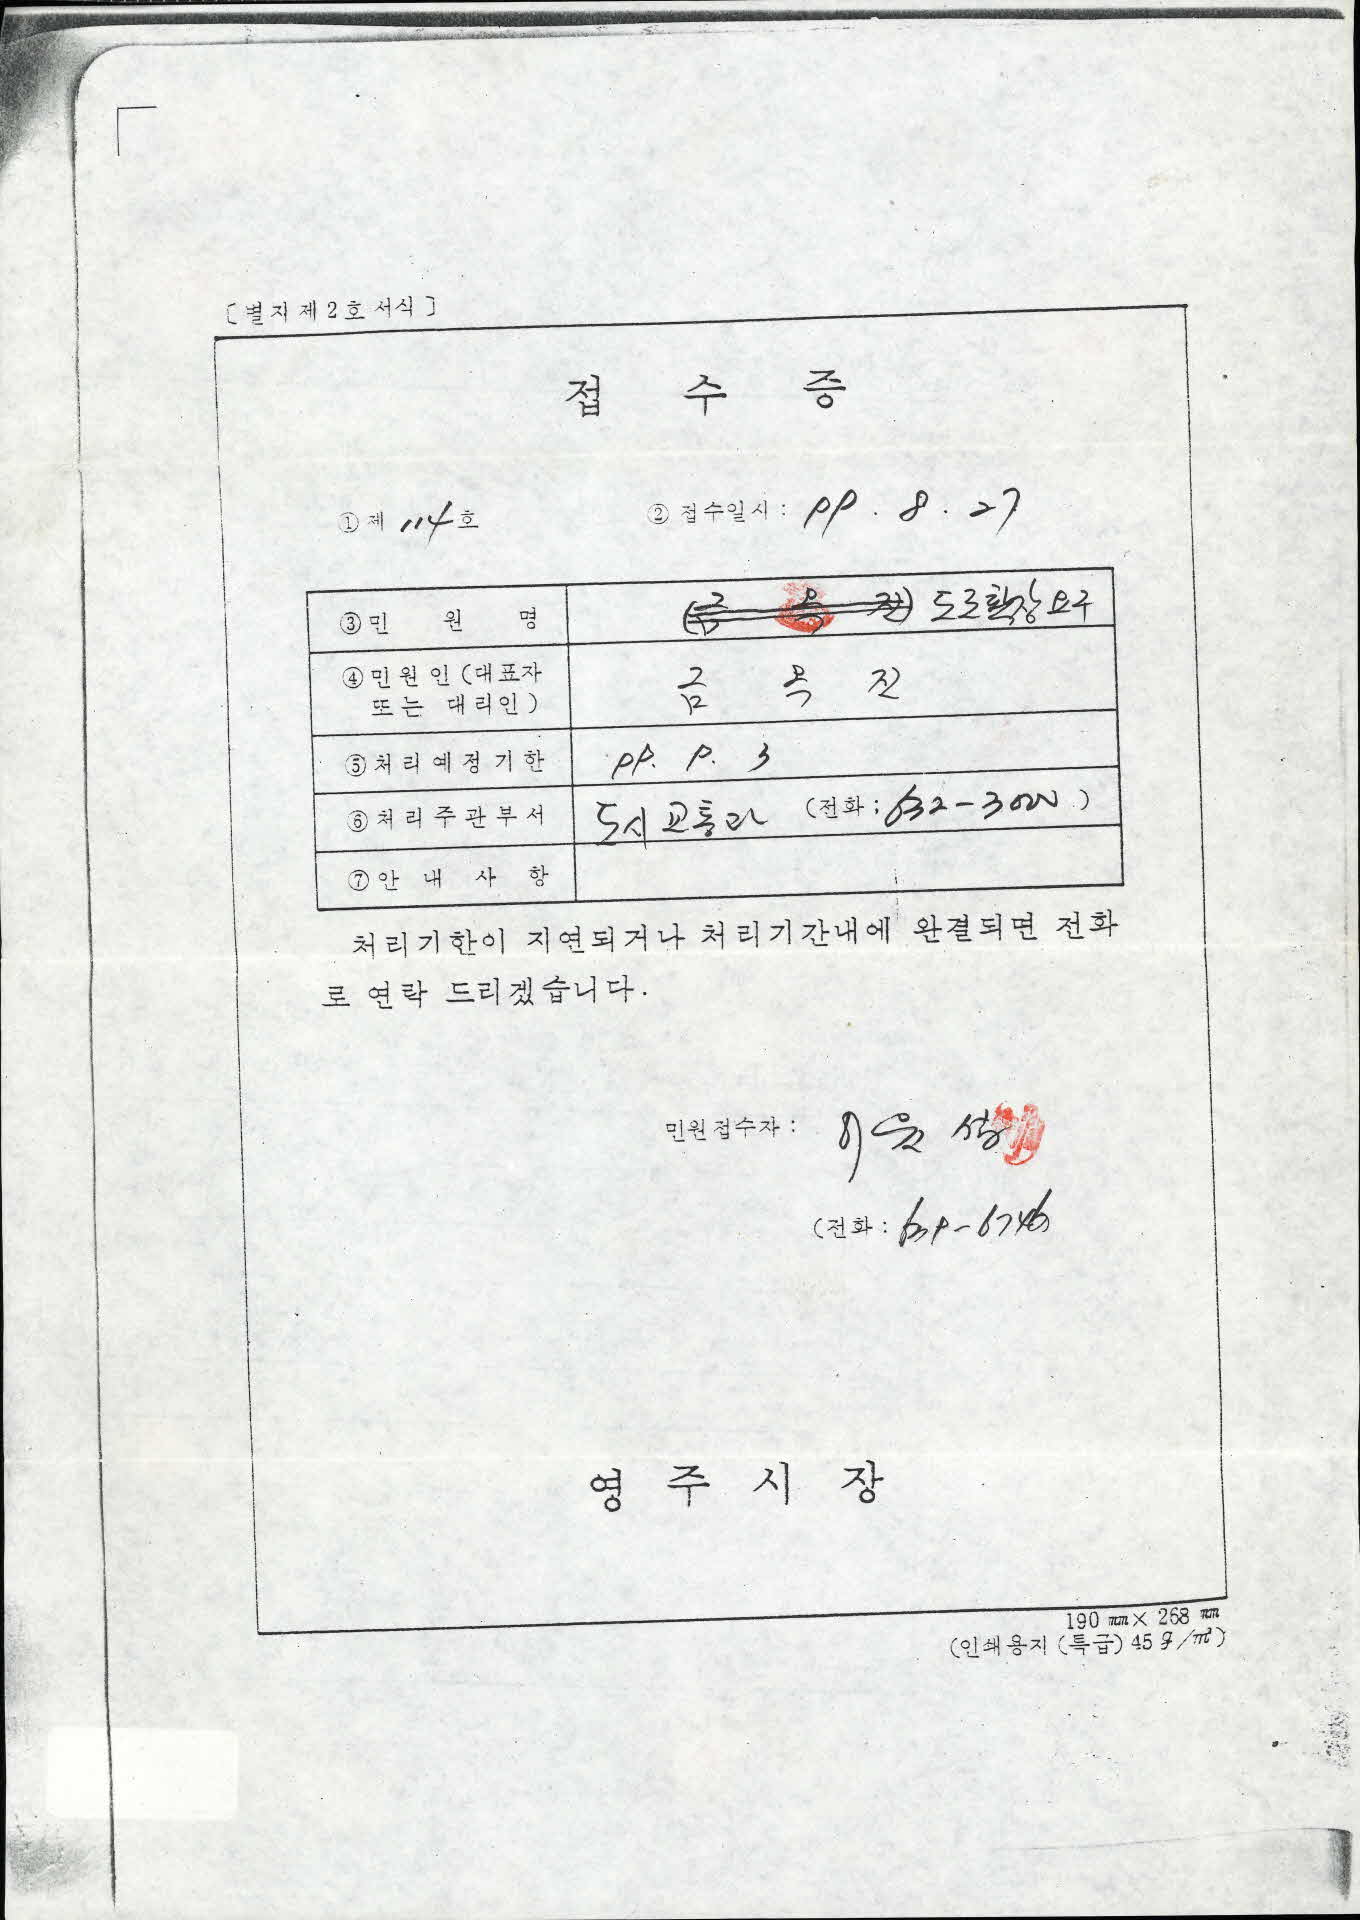 [별지 제2호 서식]
접 수 증
① 제 114 호 ② 접수일시 : 99 . 8 . 27
③ 민 원 명 (금 옥 진) 도로확장요구
④ 민원인 (대표자 또는 대리인) 금 옥 진
⑤ 처리예정기한 99. 9. 3
⑥ 처리주관부서 도시교통과 (전화 ; 632-3000 )
⑦ 안 내 사 항
처리기한이 지연되거나 처리기간내에 완결되면 전화
로 연락 드리겠습니다.
민원접수자 : 이
(전화 : 639-6746
영 주 시 장
190㎜×268㎜
(인쇄용지(특급) 45g/㎡)